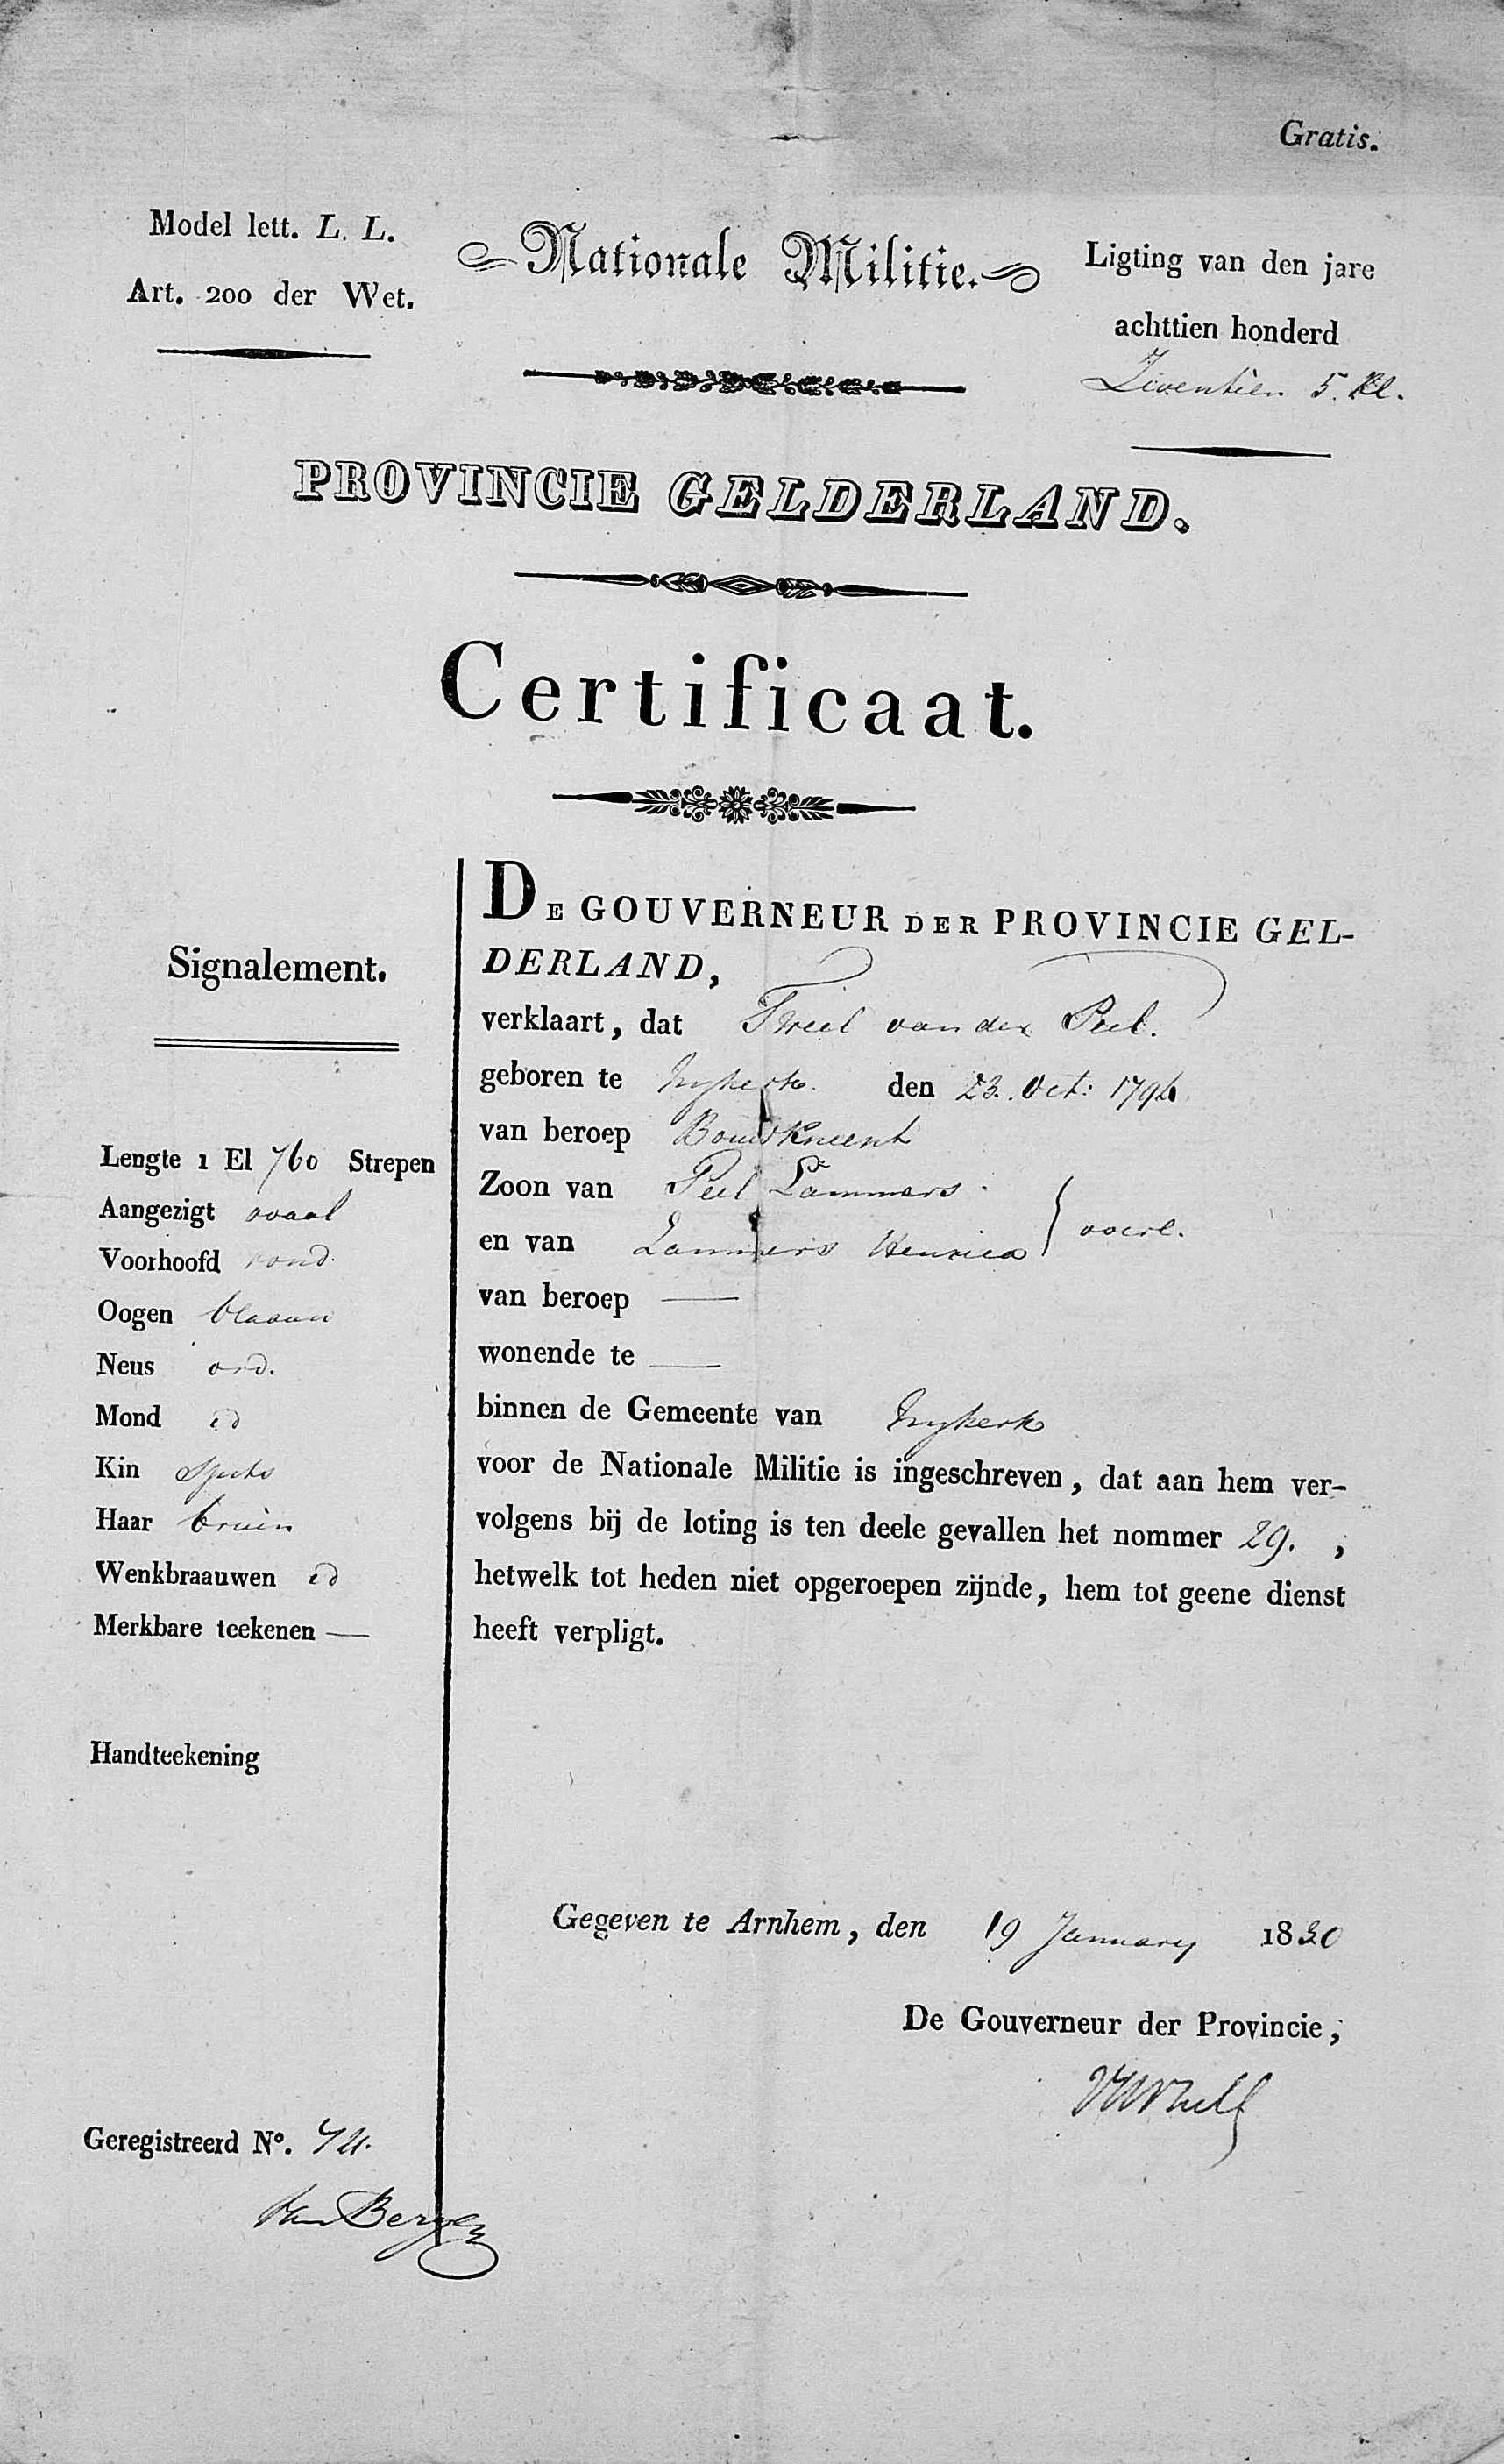 Gratis.
Model lett. L. L.
Art. 200 der Wet.
Nationale Militie.
Ligting van den jare
achttien honderd
Zeventien 5. Kl.
PROVINCIE GELDERLAND.
Certificaat.
Signalement.
Lengte 1 El 760 Strepen
Aangezigt ovaal
Voorhoofd rond
Oogen blaauw
Neus ord.
Mond id
Kin spits
Haar bruin
Wenkbraauwen id
Merkbare teekenen —
Handteekening
Geregistreerd No.
van Bergen
DE GOUVERNEUR DER PROVINCIE GEL-
DERLAND,
verklaart, dat van der Peel.
geboren te Nykerk. den 23. Oct: 1794
van beroep Bouwknecht
Zoon van Peel Lammers
en van Lammers } overl.
van beroep —
wonende te —
binnen de Gemeente van Nykerk
voor de Nationale Militie is ingeschreven, dat aan hem ver-
volgens bij de loting is ten deele gevallen het nommer 29. ,
hetwelk tot heden niet opgeroepen zijnde, hem tot geene dienst
heeft verpligt.
Gegeven te Arnhem, den 19 January 1820
De Gouverneur der Provincie,